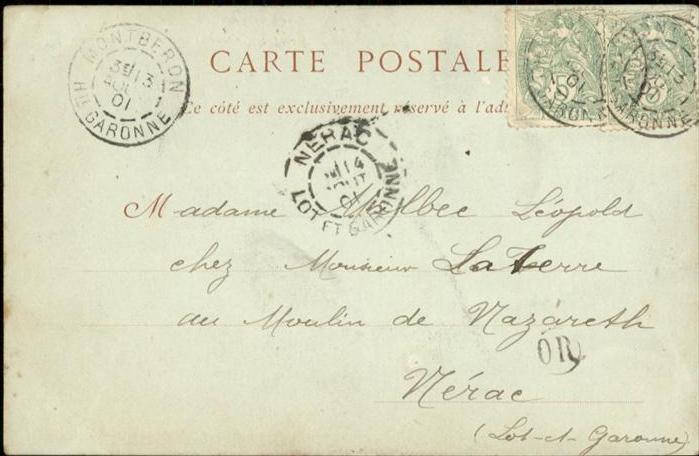 CARTE POSTALE
Ce côté est exclusivement réservé à l'ad
MONTBERON
3E 13
AOUT
01
HTE GARONNE
NERAC
14
AOUT
01
LOT ET GARONNE
01
GARONNE
3E 13
GARONNE
Madame Léopold
chez Monsieur Laterre
au Moulin de Nazareth
OR
Nérac
(Lot-et-Garonne)